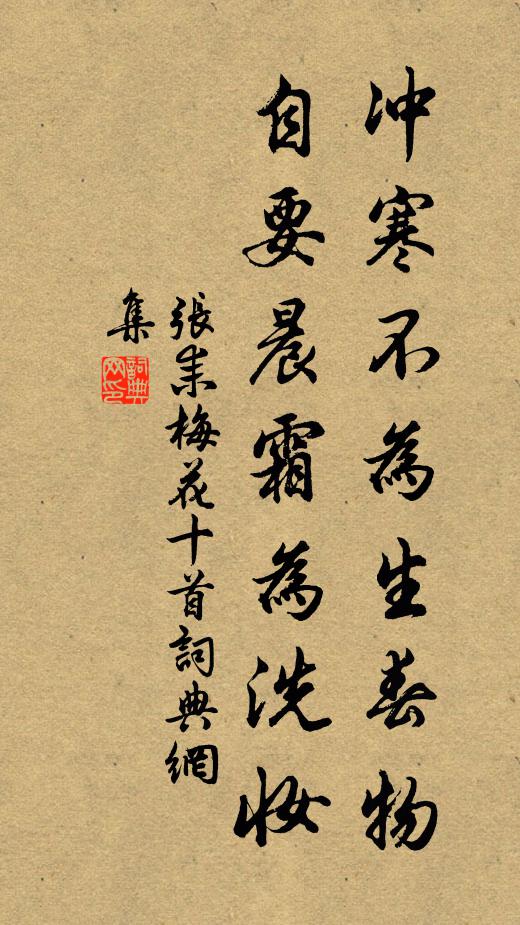 冲寒不為生春物
自要晨霜為洗妝
張耒梅花十首詞典網
集
詞典
网印